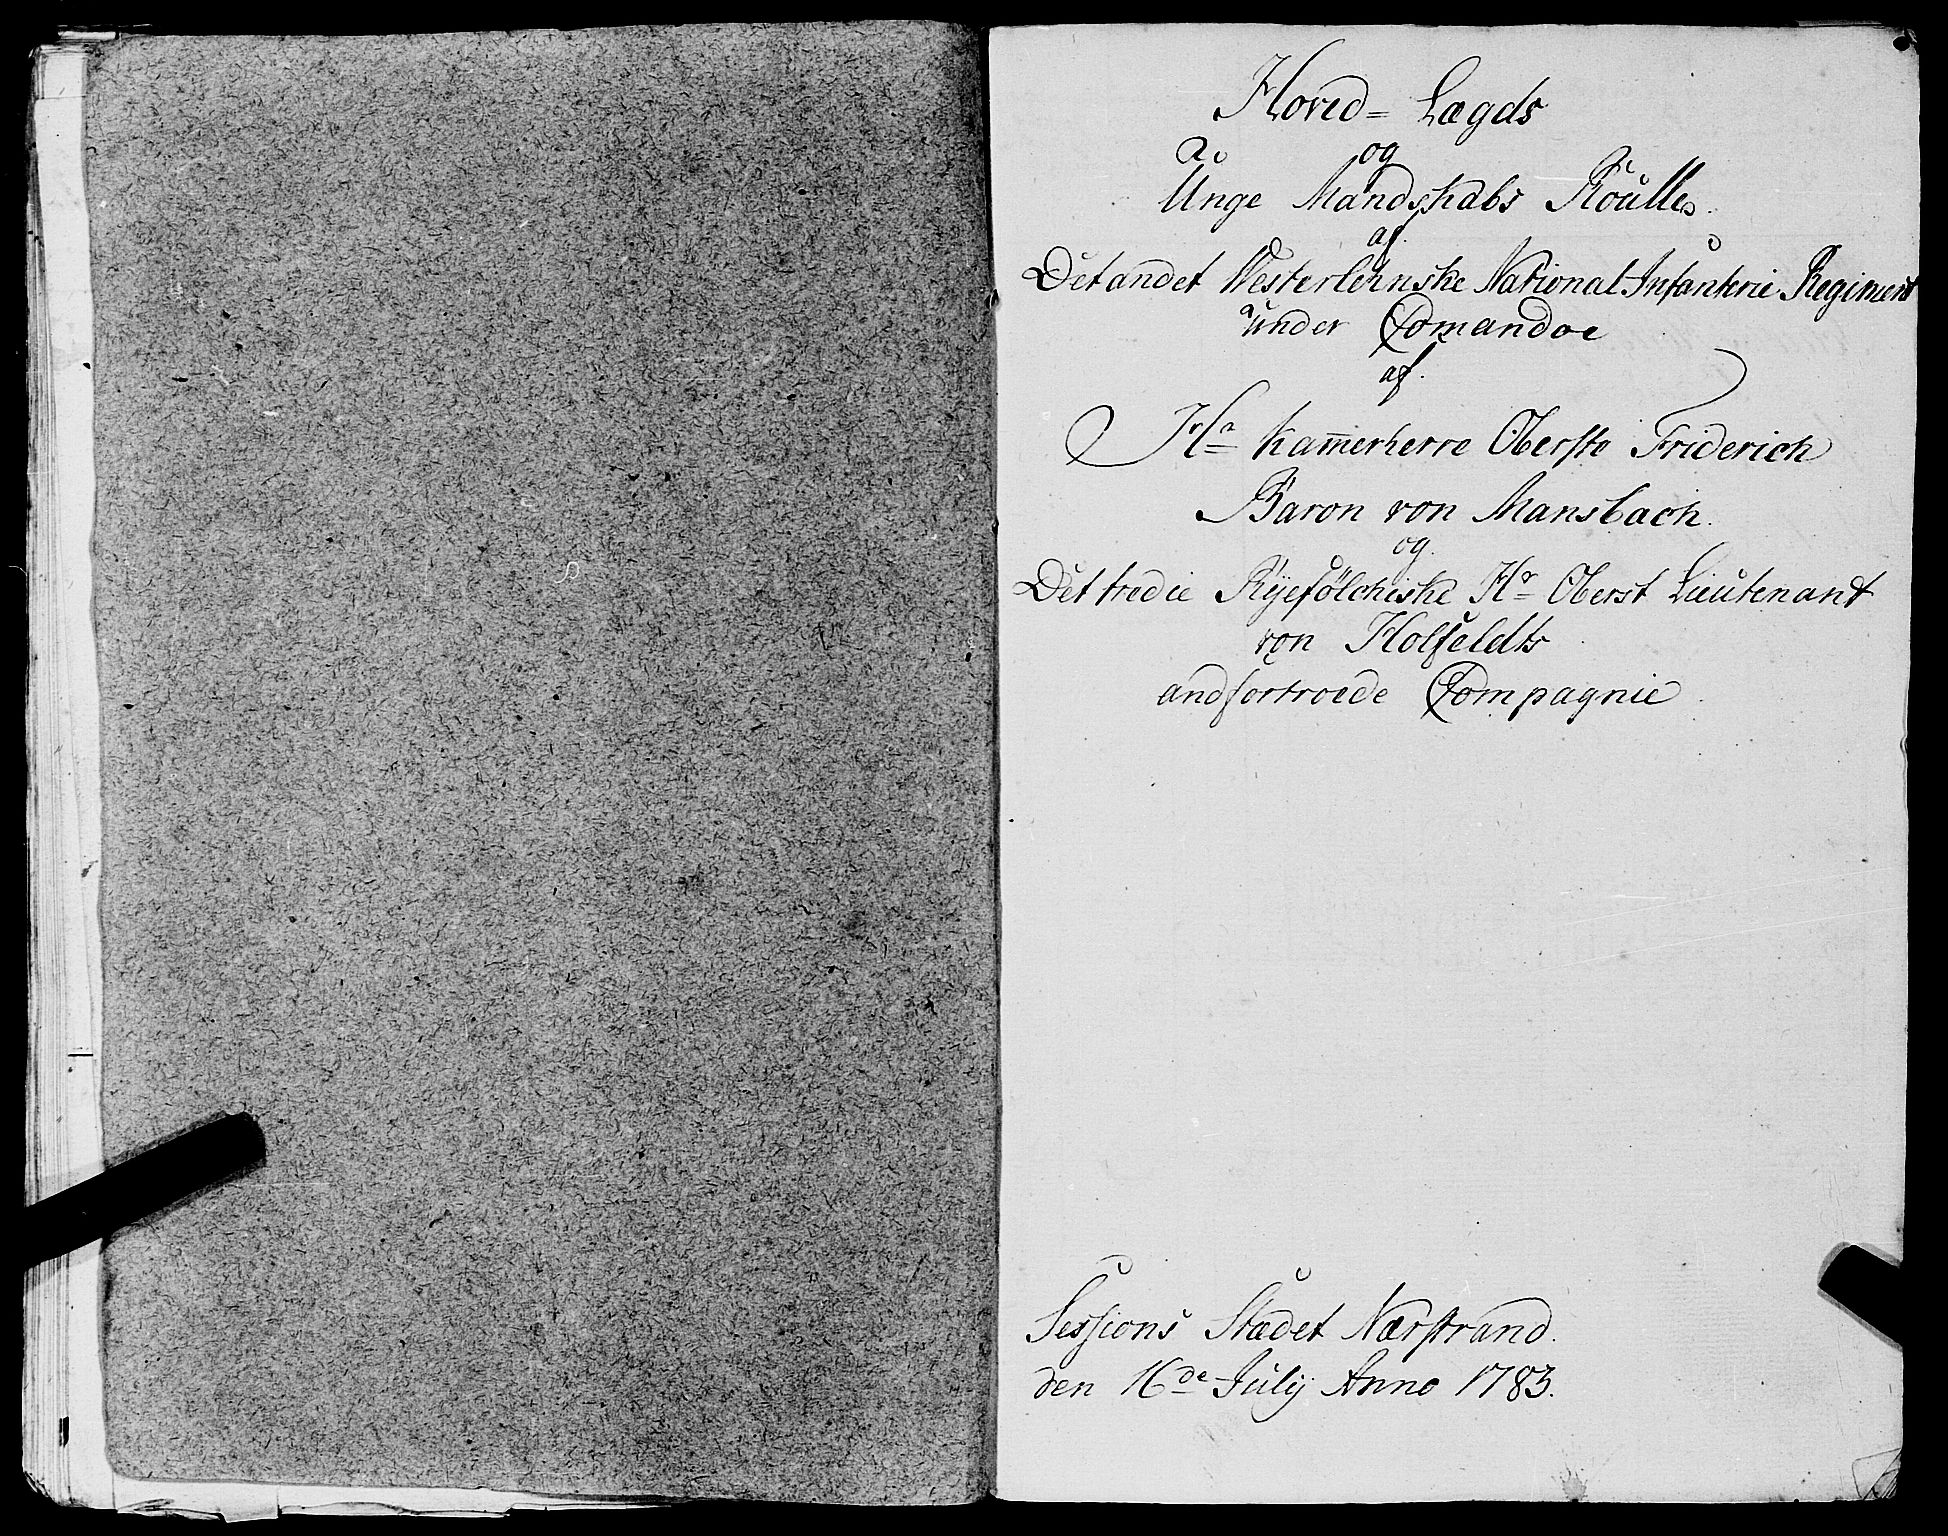 Hoved= Lægds
og
Unge Mandskabs Roulle
af
Det andet Westerlehnske National Infanterie Regiment
under Comandoe
af.
Hr Kamerherre Oberste Friderich
Baron von Mansbach.
og.
Det tredie Ryefölchiske Hr Oberst Lieutenant
von Holfeldts
andfortroede Compagnie
Sessions Stædet Nærstrand.
den 16de July Anno 1783.